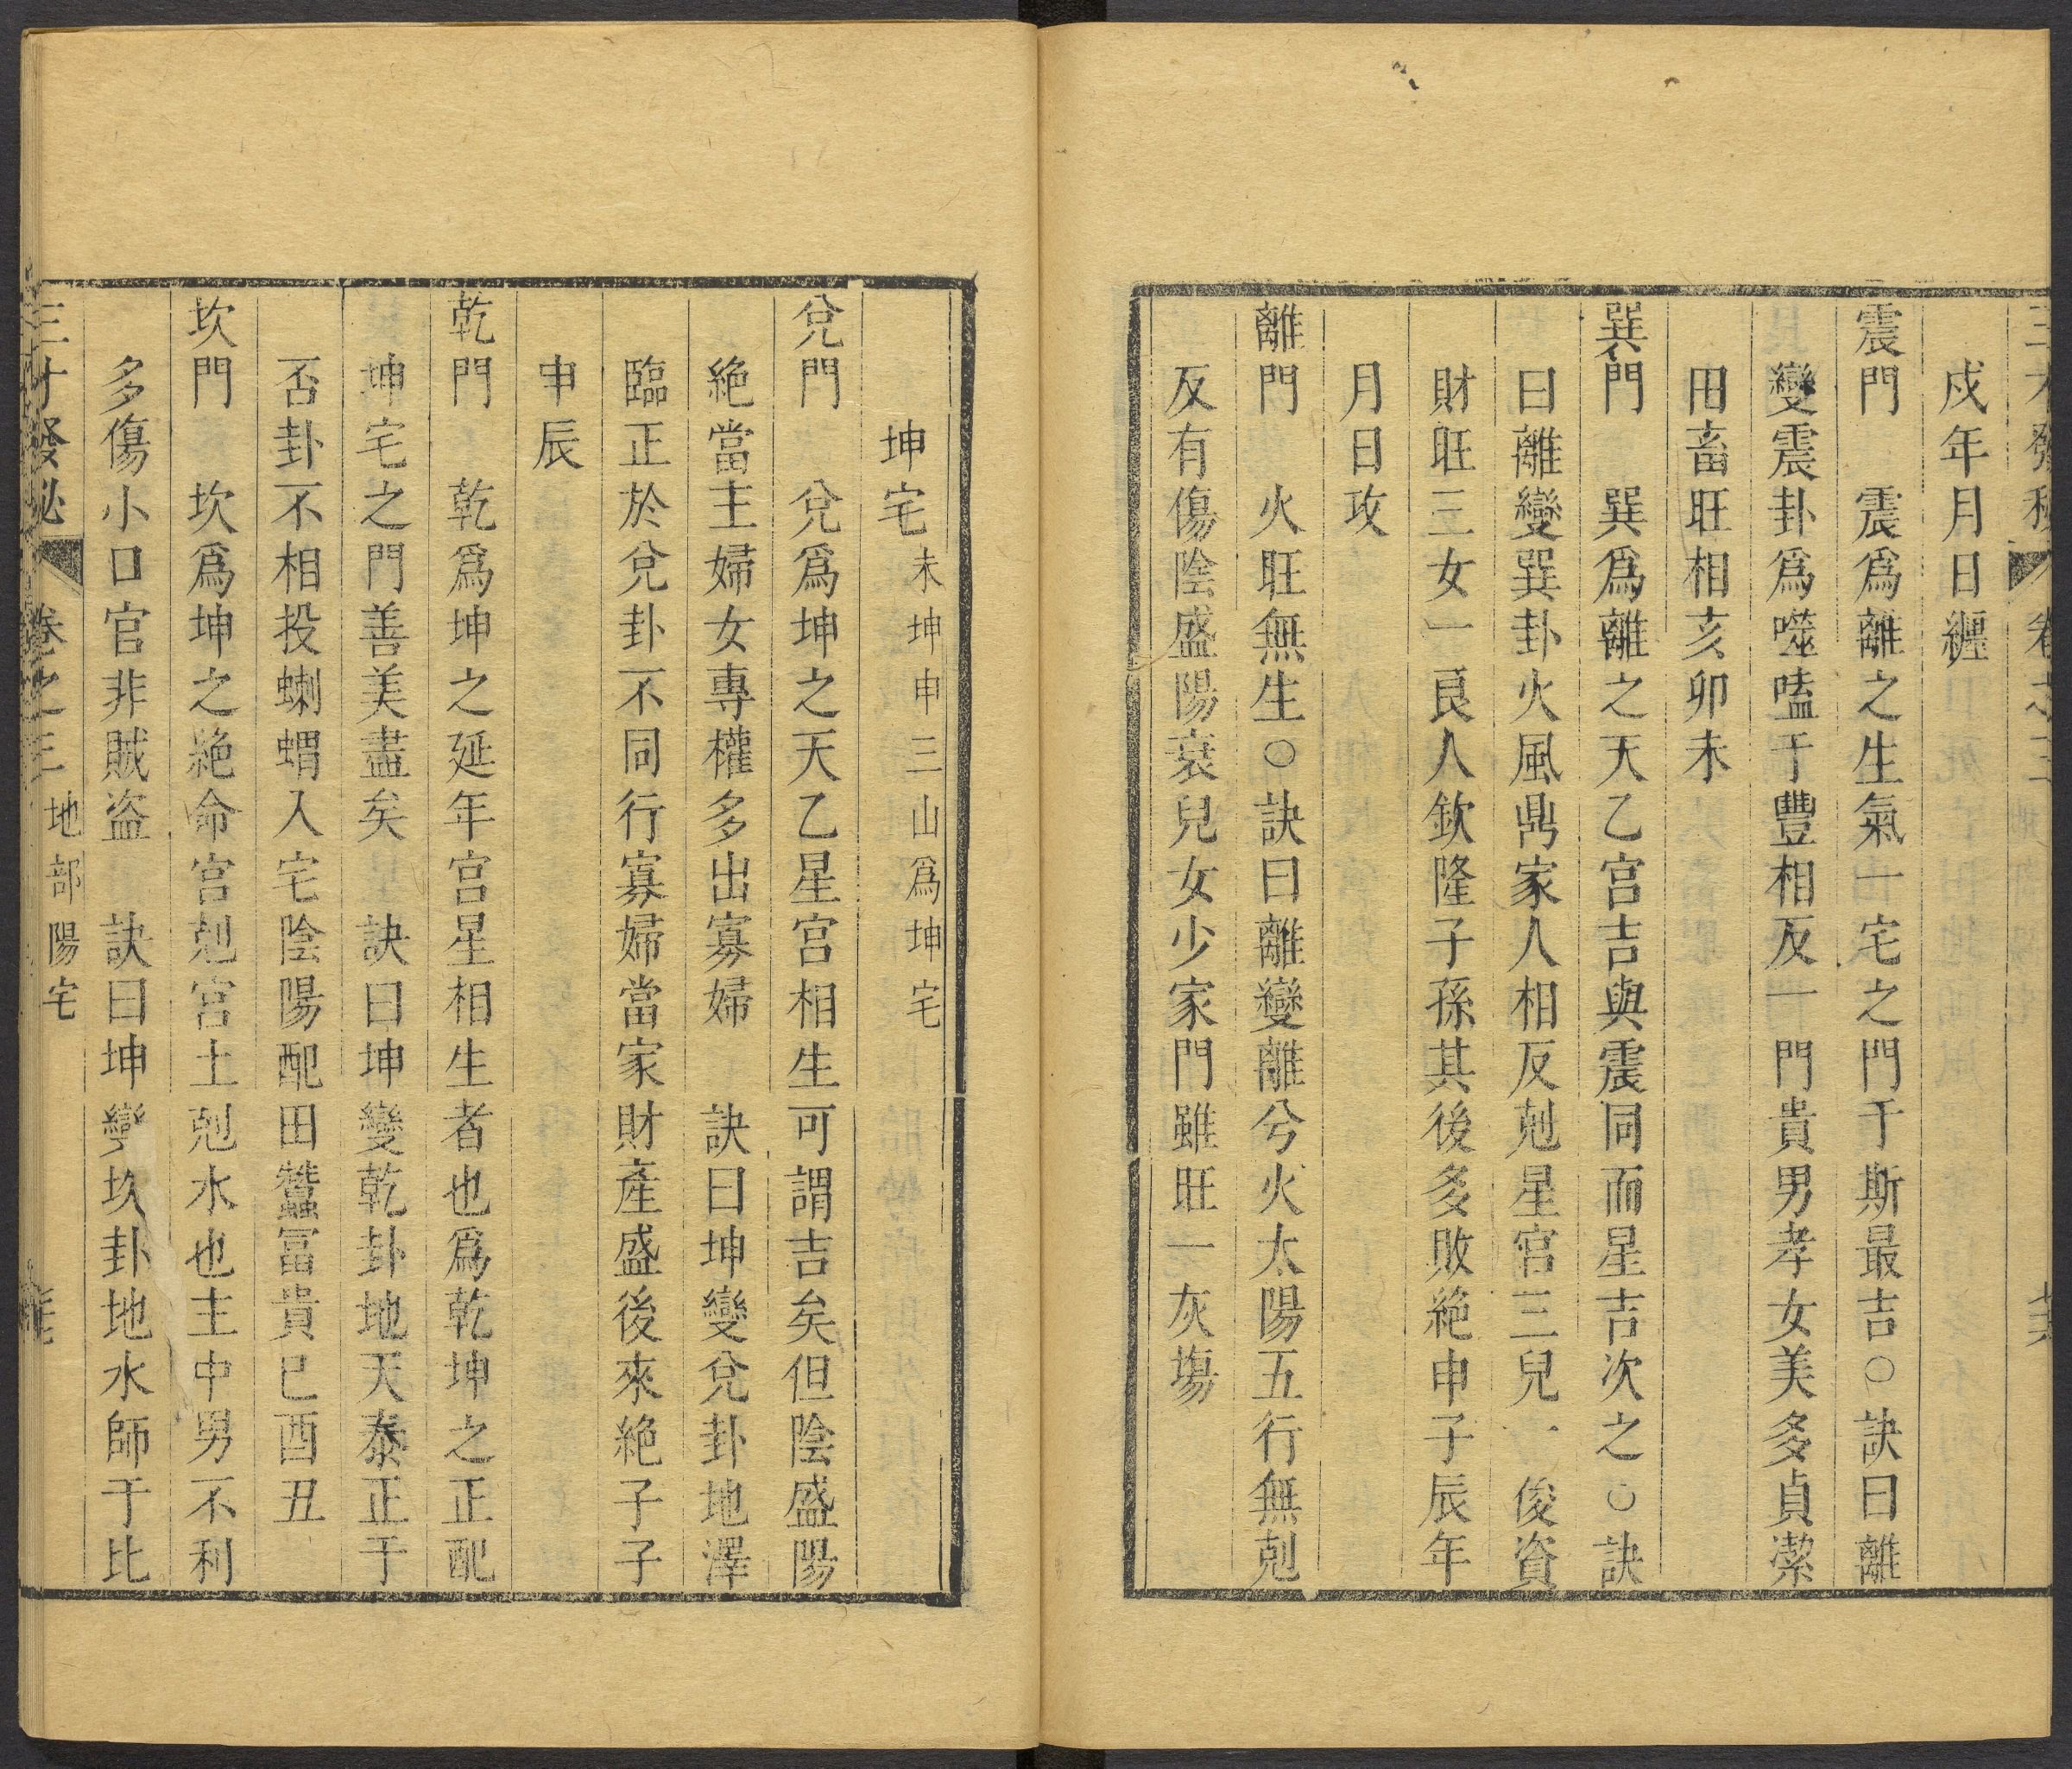 戍年月日纒
震門　震爲離之生氣一宅之門于斯最吉○訣曰離
變震卦爲噬嗑于豐相反一門貴男孝女美多貞潔
田畜旺相亥卯未
巽門　巽爲離之天乙宮吉與震同而星吉次之○訣
曰離變巽卦火風鼎家人相反剋星宮三兒一俊資
財旺三女一良人欽隆子孫其後多敗絶申子辰年
月日攻
離門　火旺無生○訣曰離變離兮火太陽五行無剋
反有傷陰盛陽衰兒女少家門雖旺一灰塲
坤宅未坤申三山爲坤宅
兌門　兌爲坤之天乙星宮相生可謂吉矣但陰盛陽
絶當主婦女專權多出寡婦　訣曰坤變兌卦地澤
臨正於兌卦不同行寡婦當家財產盛後來絶子子
申辰
乾門　乾爲坤之延年宮星相生者也爲乾坤之正配
坤宅之門善美盡矣　訣曰坤變乾卦地天泰正于
否卦不相投蝲蝟入宅陰陽配田蠶冨貴巳酉丑
坎門　坎爲坤之絶命宮剋宮土剋水也主中男不利
多傷小口官非賊盜　訣曰坤變坎卦地水師于比
三才發秘　卷之三　地部陽宅